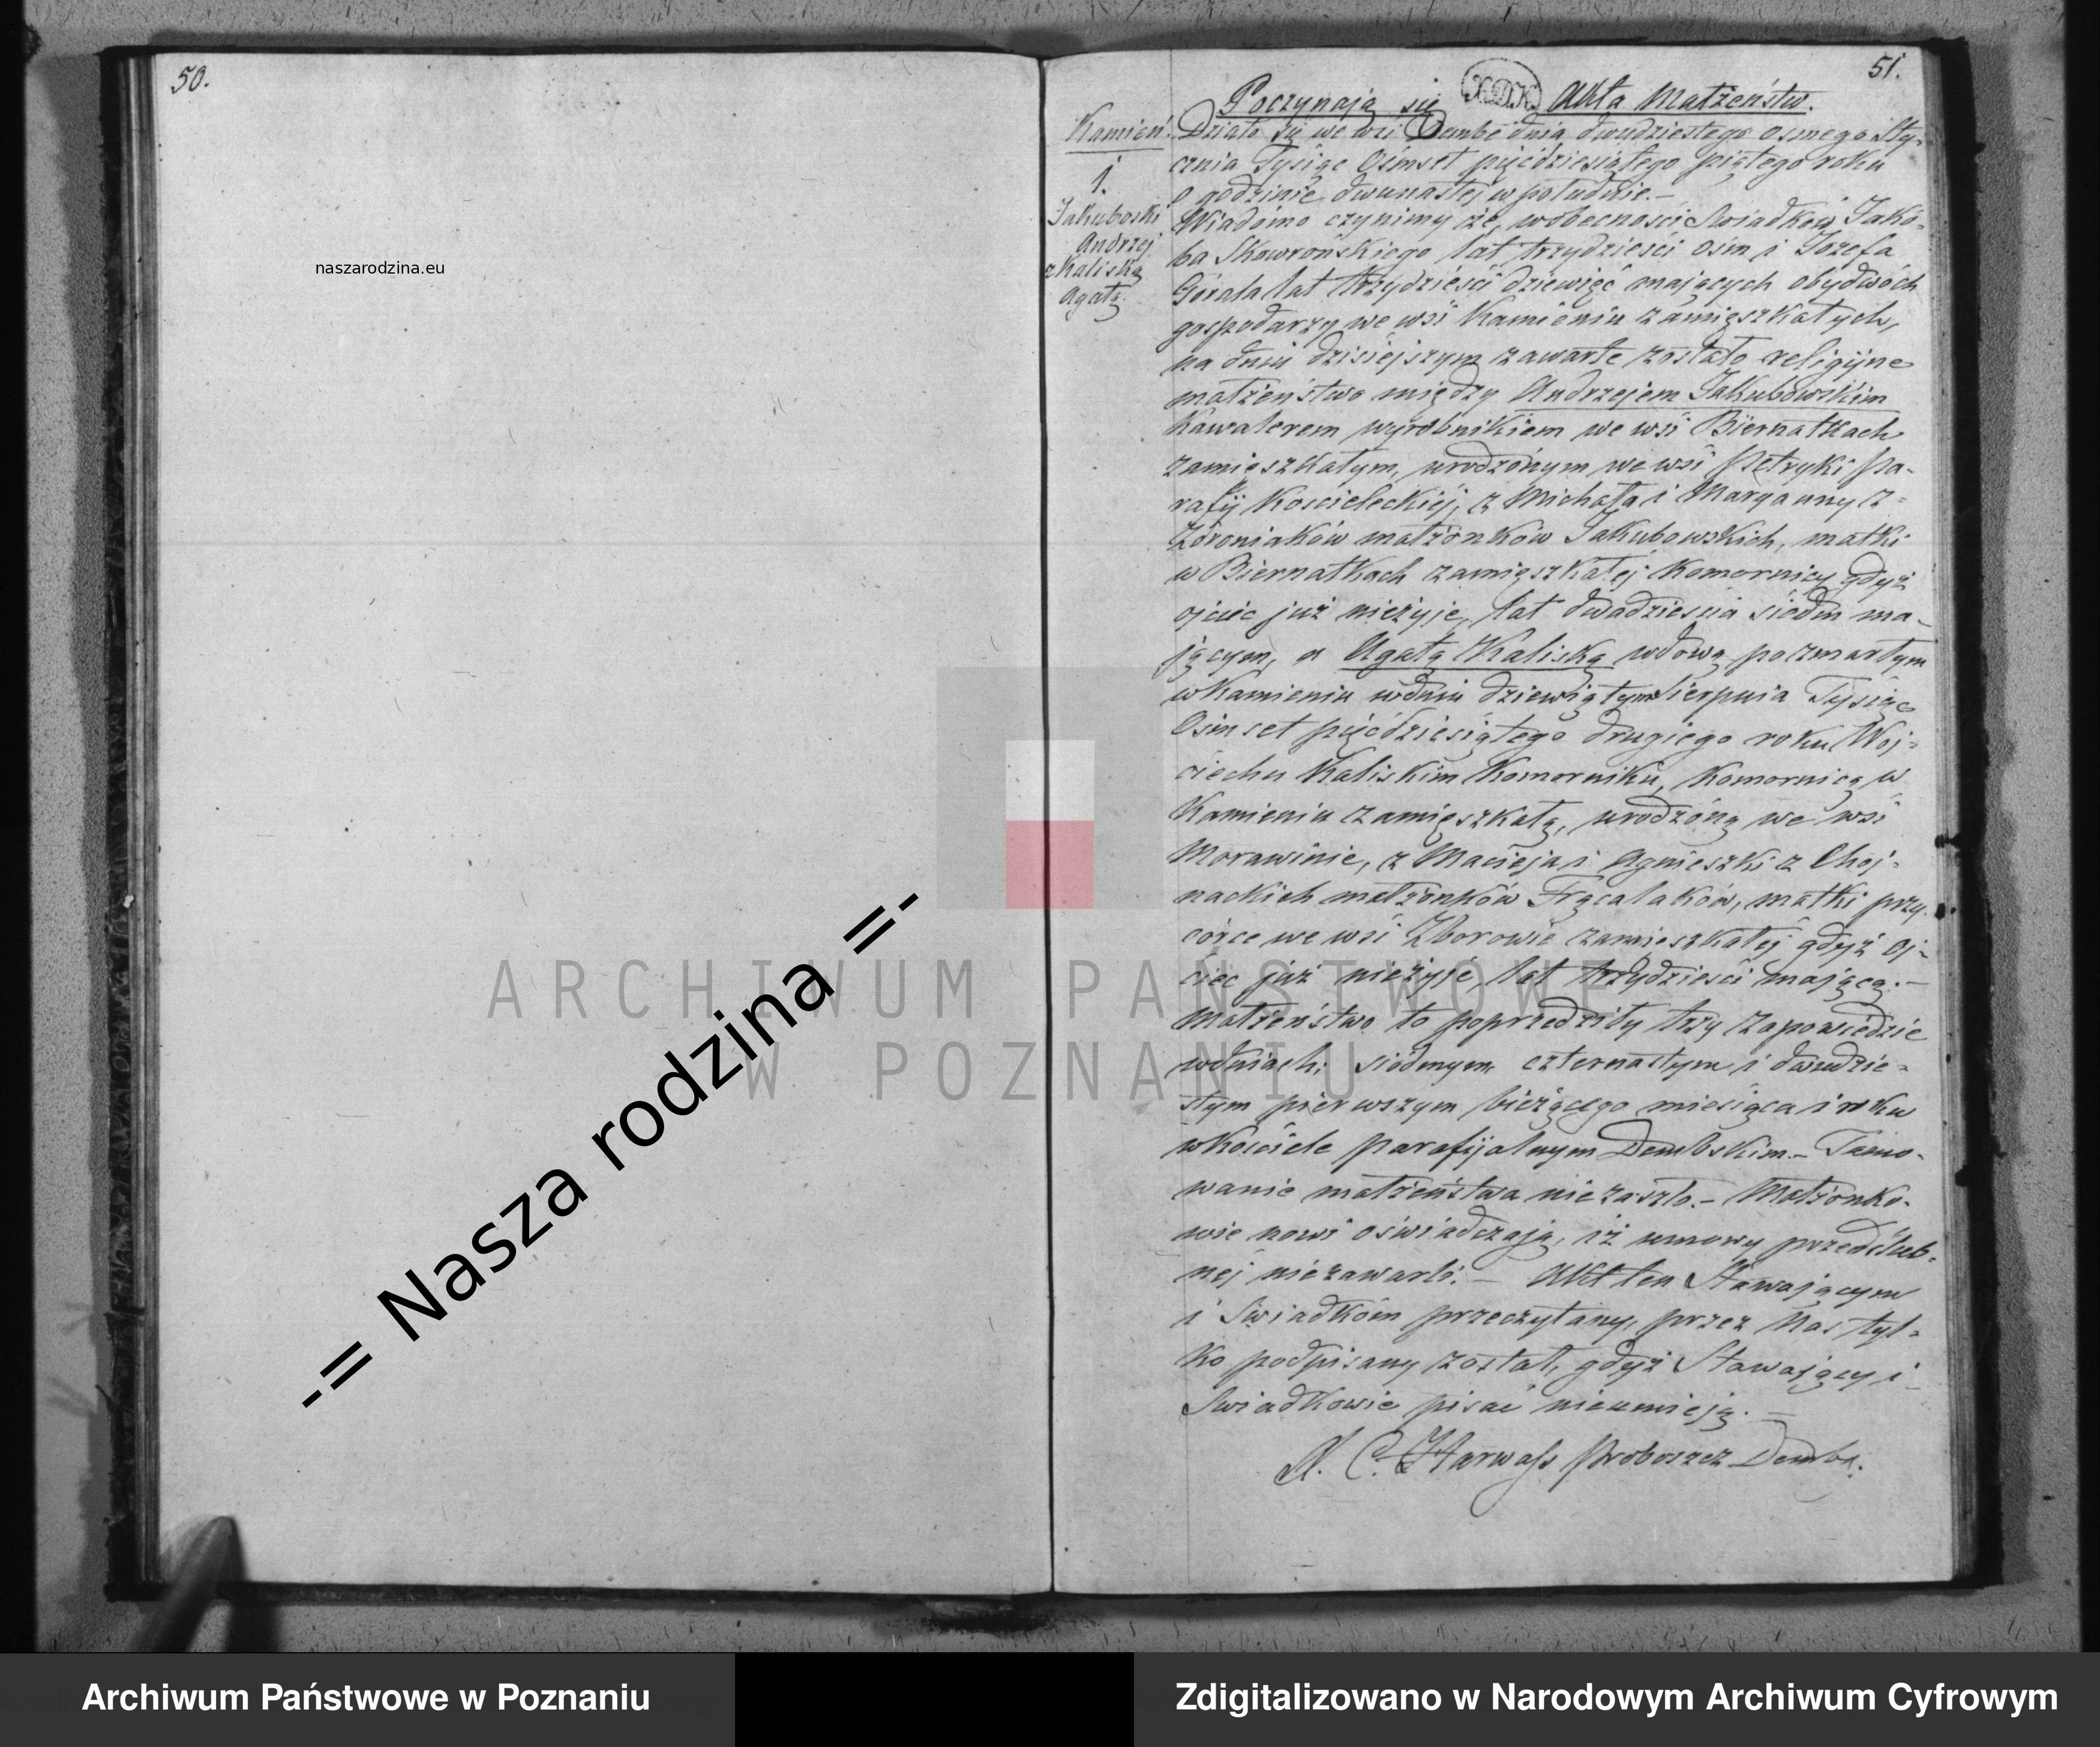 50.
naszarodzina.eu
-= Nasza rodzina =-
ARCHIWUM PAŃSTWOWE
W POZNANIU
51.
Poczynają się Akta Małżeństw.
Kamień.
1.
Jakuboski
Andrzej
z Kaliską
Agatą.
Działo się we wsi Dembe dnia dwudziestego osmego Sty-
cznia Tysiąc Ośmset pięćdziesiątego piątego roku
o godzinie dwunastej w południe.-
Wiadomo czynimy że, wobecności Swiadków Jakó-
ba Skowrońskiego lat trzydzieści ośm i Józefa
Górala lat trzydzieści dziewięć mających obydwóch
gospodarzy we wsi Kamieniu zamięszkałych,
na dniu dzisiejszym zawarte zostało religijne
małżeństwo między Andrzejem Jakubowskim
Kawalerem wyrobnikiem we wsi Biernatkach
zamięszkałym, urodzonym we wsi Petryki pa-
rafij Koscieleckiéj, z Michała i Maryanny z
Zdroniaków małżonków Jakubowskich, matki
w Biernatkach zamięszkałéj Komornicy gdyż
ojciec już nieżyje, lat dwadzieścia siedm ma-
jącym, a Agatą Kaliską wdową po zmarłym
w Kamieniu w dniu dziewiątym Sierpnia Tysiąc
Ośmset pięćdziesiątego drugiego roku Woj-
ciechu Kaliskim Komorniku, Komornicą w
Kamieniu zamięszkałą, urodzoną we wsi
Morawinie, z Macieja i Agnieszki z Choj-
nackich małżonków Frącalaków, matki przy
córce we wsi Zborowie zamieszkałéj gdyż oj-
ciec już nieżyje, lat trzydzieści mającą.-
Małżeństwo to poprzedziły trzy zapowiedzie
w dniach: siódmym czternastym i dwudzie-
stym pierwszym bieżącego miesiąca i roku
w kościele parafijalnym Dembskim.- Tamo-
wanie małżeństwa nie zaszło.- Małżonko-
wie nowi oświadczają, iż umowy przedślub-
néj niezawarli.- Akt ten Stawającym
i Swiadkóm przeczytany, przez Nas tyl-
ko podpisany został, gdyż Stawający i
Swiadkowie pisać nieumieją.-
Proboszcz Demba.
Archiwum Państwowe w Poznaniu
Zdigitalizowano w Narodowym Archiwum Cyfrowym